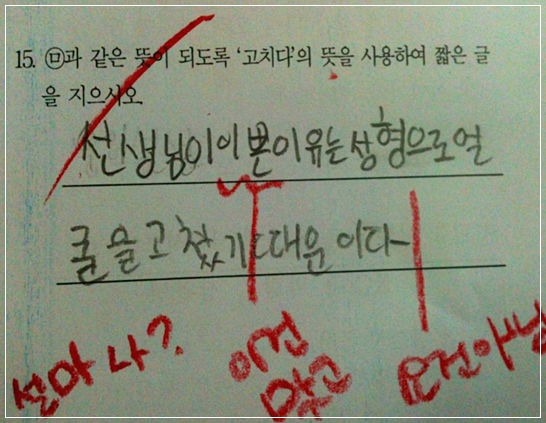 15. ㉤과 같은 뜻이 되도록 '고치다'의 뜻을 사용하여 짧은 글
을 지으시오.
선생님이 이쁜이유는 성형으로 얼
굴을 고쳤기때문이다
설마 나?
이건
맞고
요건아님